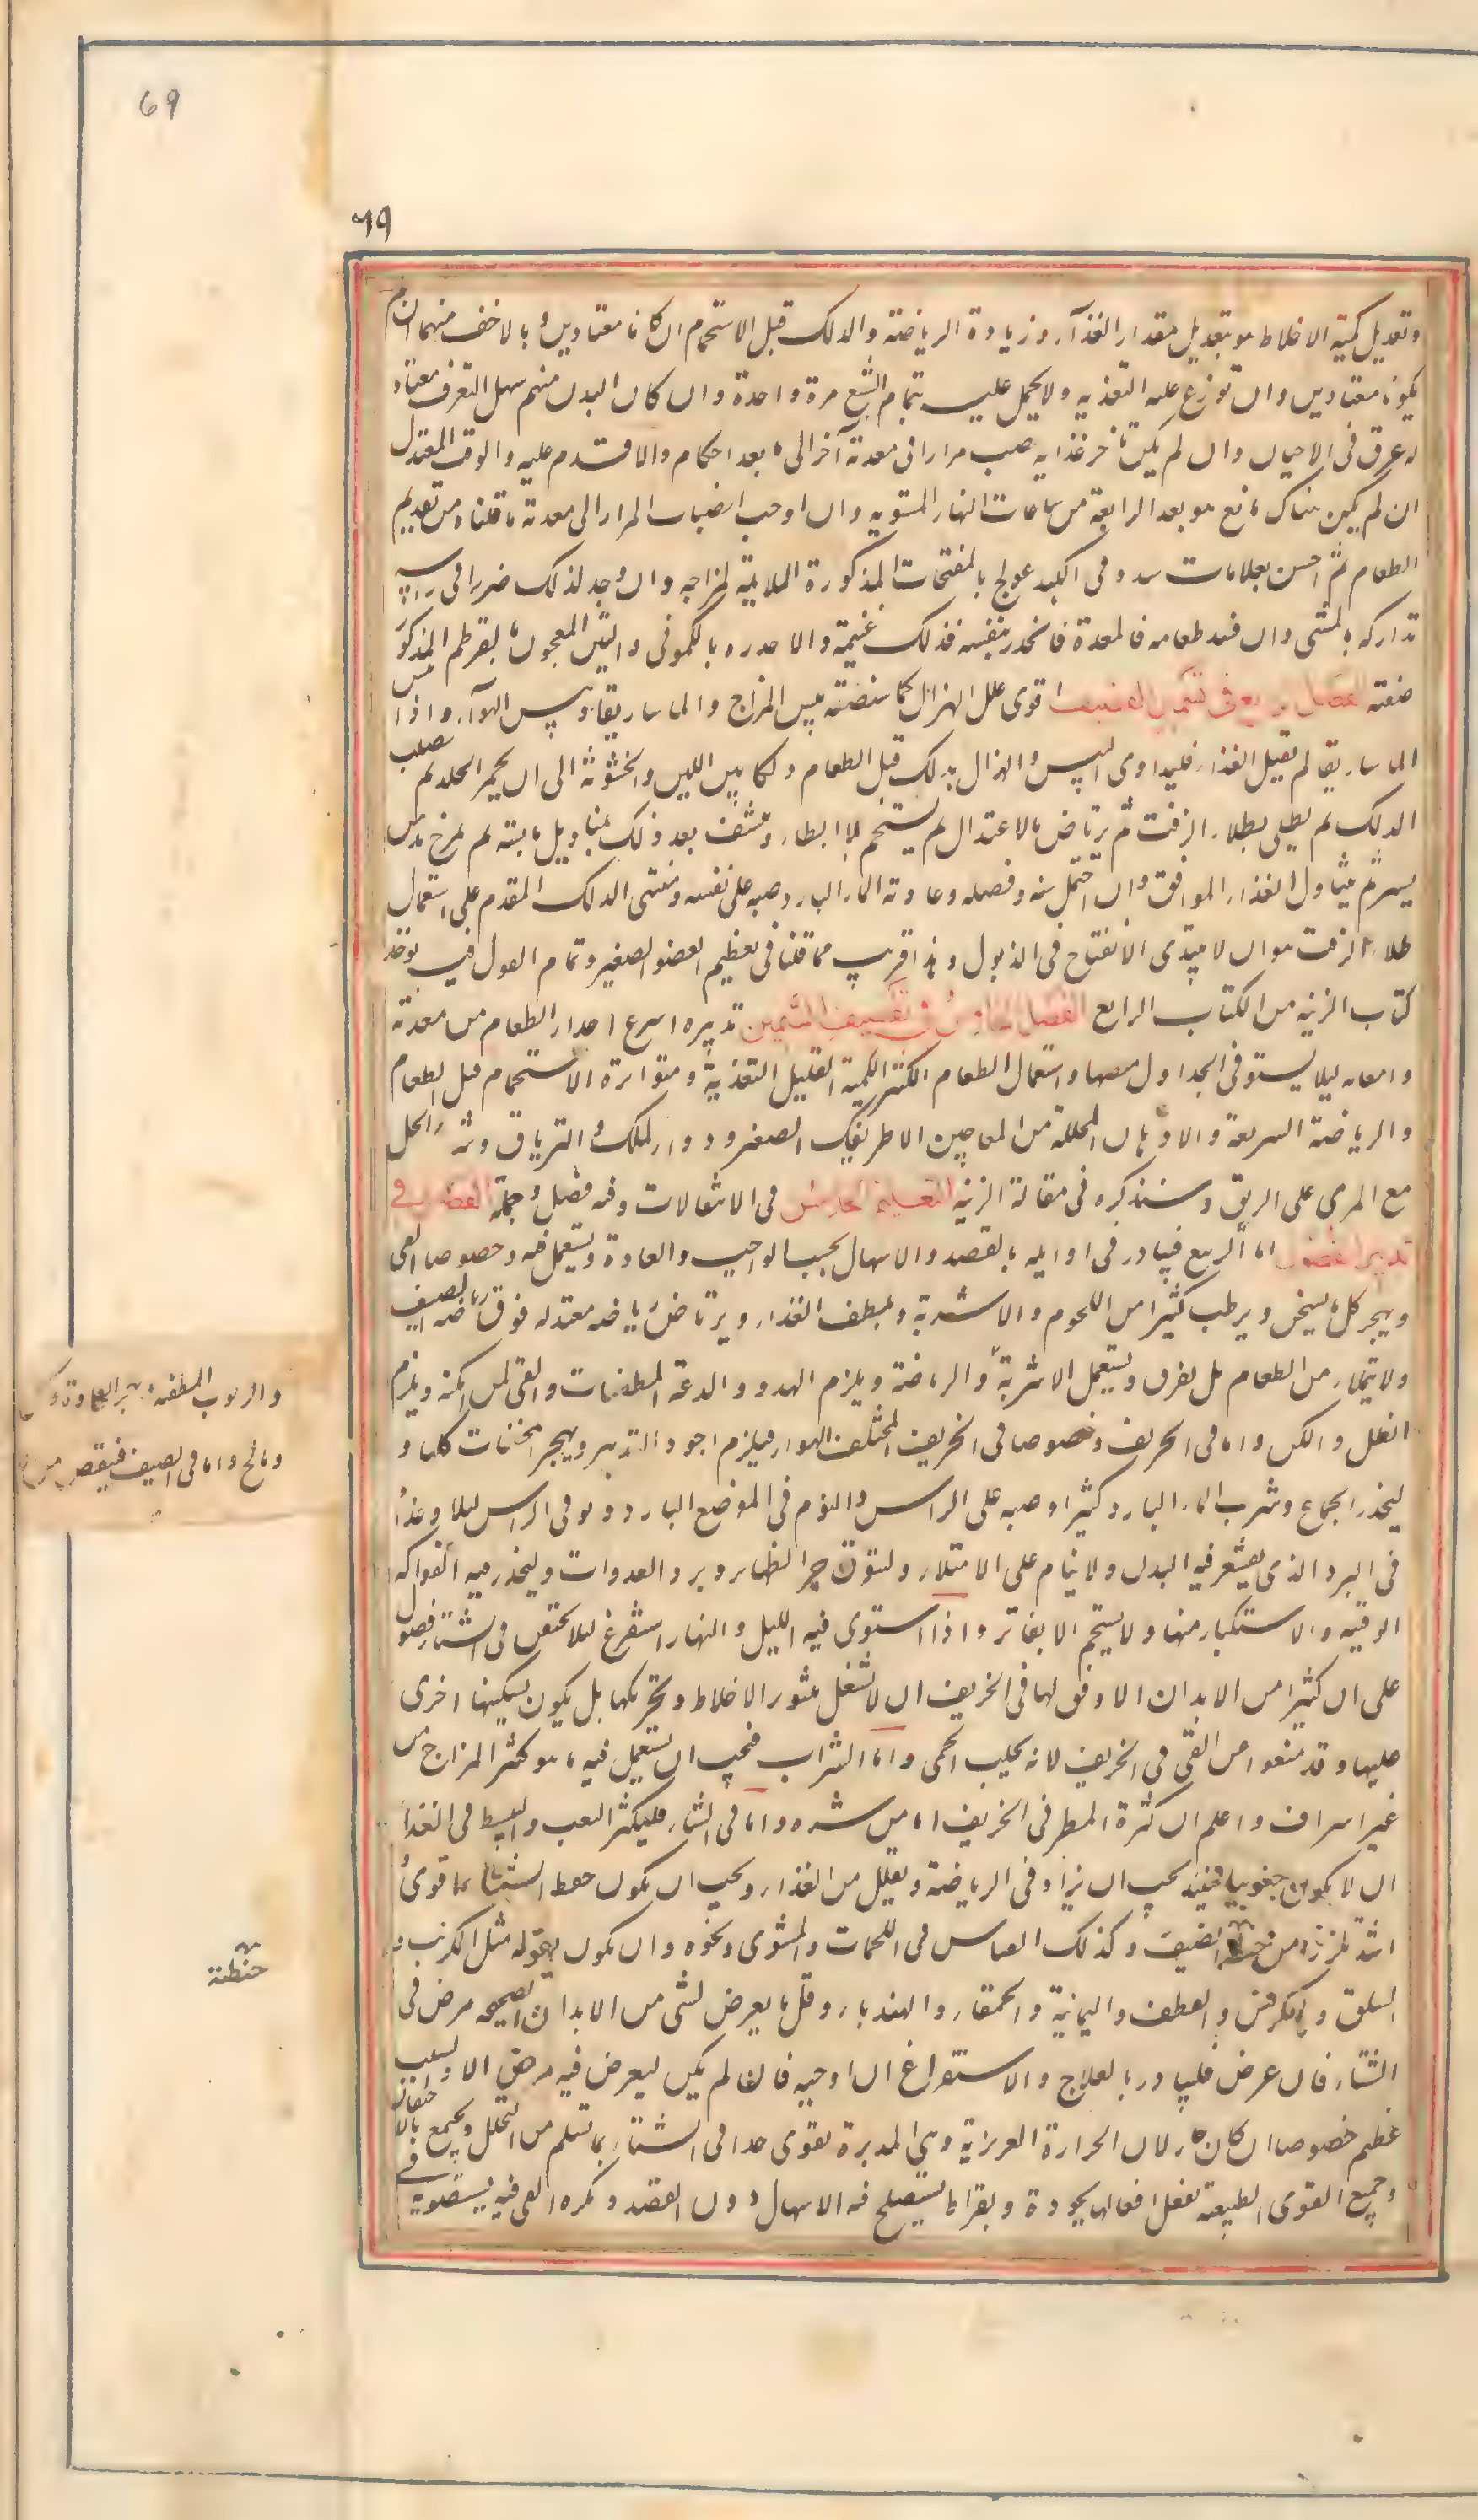 69
٦٩
وتعديل كمية الاخلاط هو بتعديل مقدار الغذآء وزيادة الرياضة والدلك قبل الاستحمام ان كانا معتادين و بالاخف منهما ان لم
يكونا معتادين وان توزع عليه التغذيه ولا يحمل عليه بتمام الشبع مرة واحدة وان كان البدن منهم سهل التعرق معتاد
له عرق فى الاحيان وان لم يكن تاخر غذايه يصب مرارا فى معدته اخر الى ما بعد احكام والا قدم عليه والوقت المعتدل
ان لم يكن هناك مانع هو بعد الرابعة من ساعات النهار المستويه وان اوجب انصباب المرار الى معدته ما قلناه من تقديم
الطعام ثم احس بعلامات سدد فى الكبد عولج بالمفتحات المذكورة الملايمة لمزاجه وان وجد لذلك ضررا فى راسه
تداركه بالمشى وان فسد طعامه فى المعدة فانحدر بنفسه فذلك غنيمة والا احدره بالكمونى والتين المعجون بالقرطم المذكور
صفته الفصل الرابع فى تسمين القضيف اقوى علل الهزال كما سنصفه يبس المزاج والماساريقا ويبس الهوآء واذا يبس
الماساريقا لم يقبل الغذاء فليداوى اليبس والهزال بدلك قبل الطعام دلكا بين اللين والخشونة الى ان يحمر الجلد ثم يصلب
الدلك ثم يطلى بطلاء الزفت ثم يرتاض بالاعتدال ثم يستحم بلا ابطاء وينشف بعد ذلك بمناديل يابسة ثم يمرخ بدهن
يسير ثم يتناول الغذاء الموافق وان احتمل سنه وفصله وعادته الماء البارد صبه على نفسه ومنتهى الدلك المقدم على استعمال
طلاء الزفت هو ان لا يبتدى الانتفاخ فى الذبول وهذا قريب مما قلنا فى تعظيم العضو الصغير وتمام القول فيه يوجد فى
كتاب الزينه من الكتاب الرابع الفصل الخامس فى تقضيف السمين تدبيره اسرع احدار الطعام من معدته
وامعايه ليلا يستوفى الجداول مصها واستعمال الطعام الكثير الكمية القليل التغذية ومواترة الاستحمام قبل الطعام
والرياضة السريعة والادهان المحللة ومن المعاجين الاطريفل الصغير ودواء الملك والترياق وشرب الخل
مع المرى على الريق وسنذكره فى مقالة الزينه التعليم الخامس فى الانتقالات وفيه فصل وجملة الفصل فى
تدبير الفصول اما الربيع فيبادر فى اوايله بالفصد والاسهال بحسب الواجب والعادة ويستعمل فيه وخصوصا القى
ويهجر كل ما يسخن ويرطب كثيرا من اللحوم والاشربة ويلطف الغذاء ويرتاض رياضه معتدله فوق رياضه الصيف
ولا يمتلاء من الطعام بل يفرق ويستعمل الاشربة والرياضة ويلزم الهدو والدعة والمطفئات والقى لمن امكنه ويلزم
الظل والكن واما فى الخريف وخصوصا فى الخريف المختلف الهواء فيلزم اجود التدبير ويهجر المجففات كلها و
ليحذر الجماع وشرب الماء البارد كثيرا وصبه على الراس والنوم فى الموضع البارد ويوقى الراس ليلا وغدآء
فى البرد الذى يقشعر فيه البدن ولا ينام على الامتلاء وليتوق حر الظهاير وبرد الغدوات وليحذر فيه الفواكه
الوقتيه والاستكثار منها ولا يستحم الا بفاتر واذا استوى فيه الليل والنهار استفرغ ليلا يحتقن فى الشتاء فضول
على ان كثيرا من الابدان الاوفق لها فى الخريف ان لا تشغل بثور الاخلاط وتحريكها بل يكون تسكينها اجرى
عليها وقد منعوا عن القى فى الخريف لانه يجلب الحمى واما الشراب فيجب ان يستعمل فيه ما هو كثير المزاج من
غير اسراف واعلم ان كثرة المطر فى الخريف امان من شره واما فى الشتاء فليكثر التعب والبسط فى الغذآء
ان لا يكون جنوبيا فحينئذ يجب ان يزاد فى الرياضة ويقلل من الغذاء ويجب ان يكون حنطة الشتاء مما قوى
اشد تلززا من حنطة الصيف وكذلك القياس فى اللحمات والمشوى ونحوه وان يكون بقوله مثل الكرنب و
السلق والكرفس و القطف واليمانية والحمقاء والهندباء وقل ما يعرض لشى من الابدان الصحيحه مرض فى
الشتاء فان عرض فليبادر بالعلاج والاستفراغ ان اوجبه فانه لم يكن ليعرض فيه مرض الا والسبب
عظيم خصوصا ان كان حار لان الحرارة الغريزية وهى المدبرة تقوى جدا فى الشتاء بما تسلم من التحلل ويجتمع بالاحتقان
وجميع القوى الطبيعة تفعل افعالها بجودة وبقراط يستصلح فيه الاسهال دون الفصد ويكره القى فيه ويستصوبه فى
والربوب المطفئه
ومالح واما فى الصيف فينقص من
حنطة